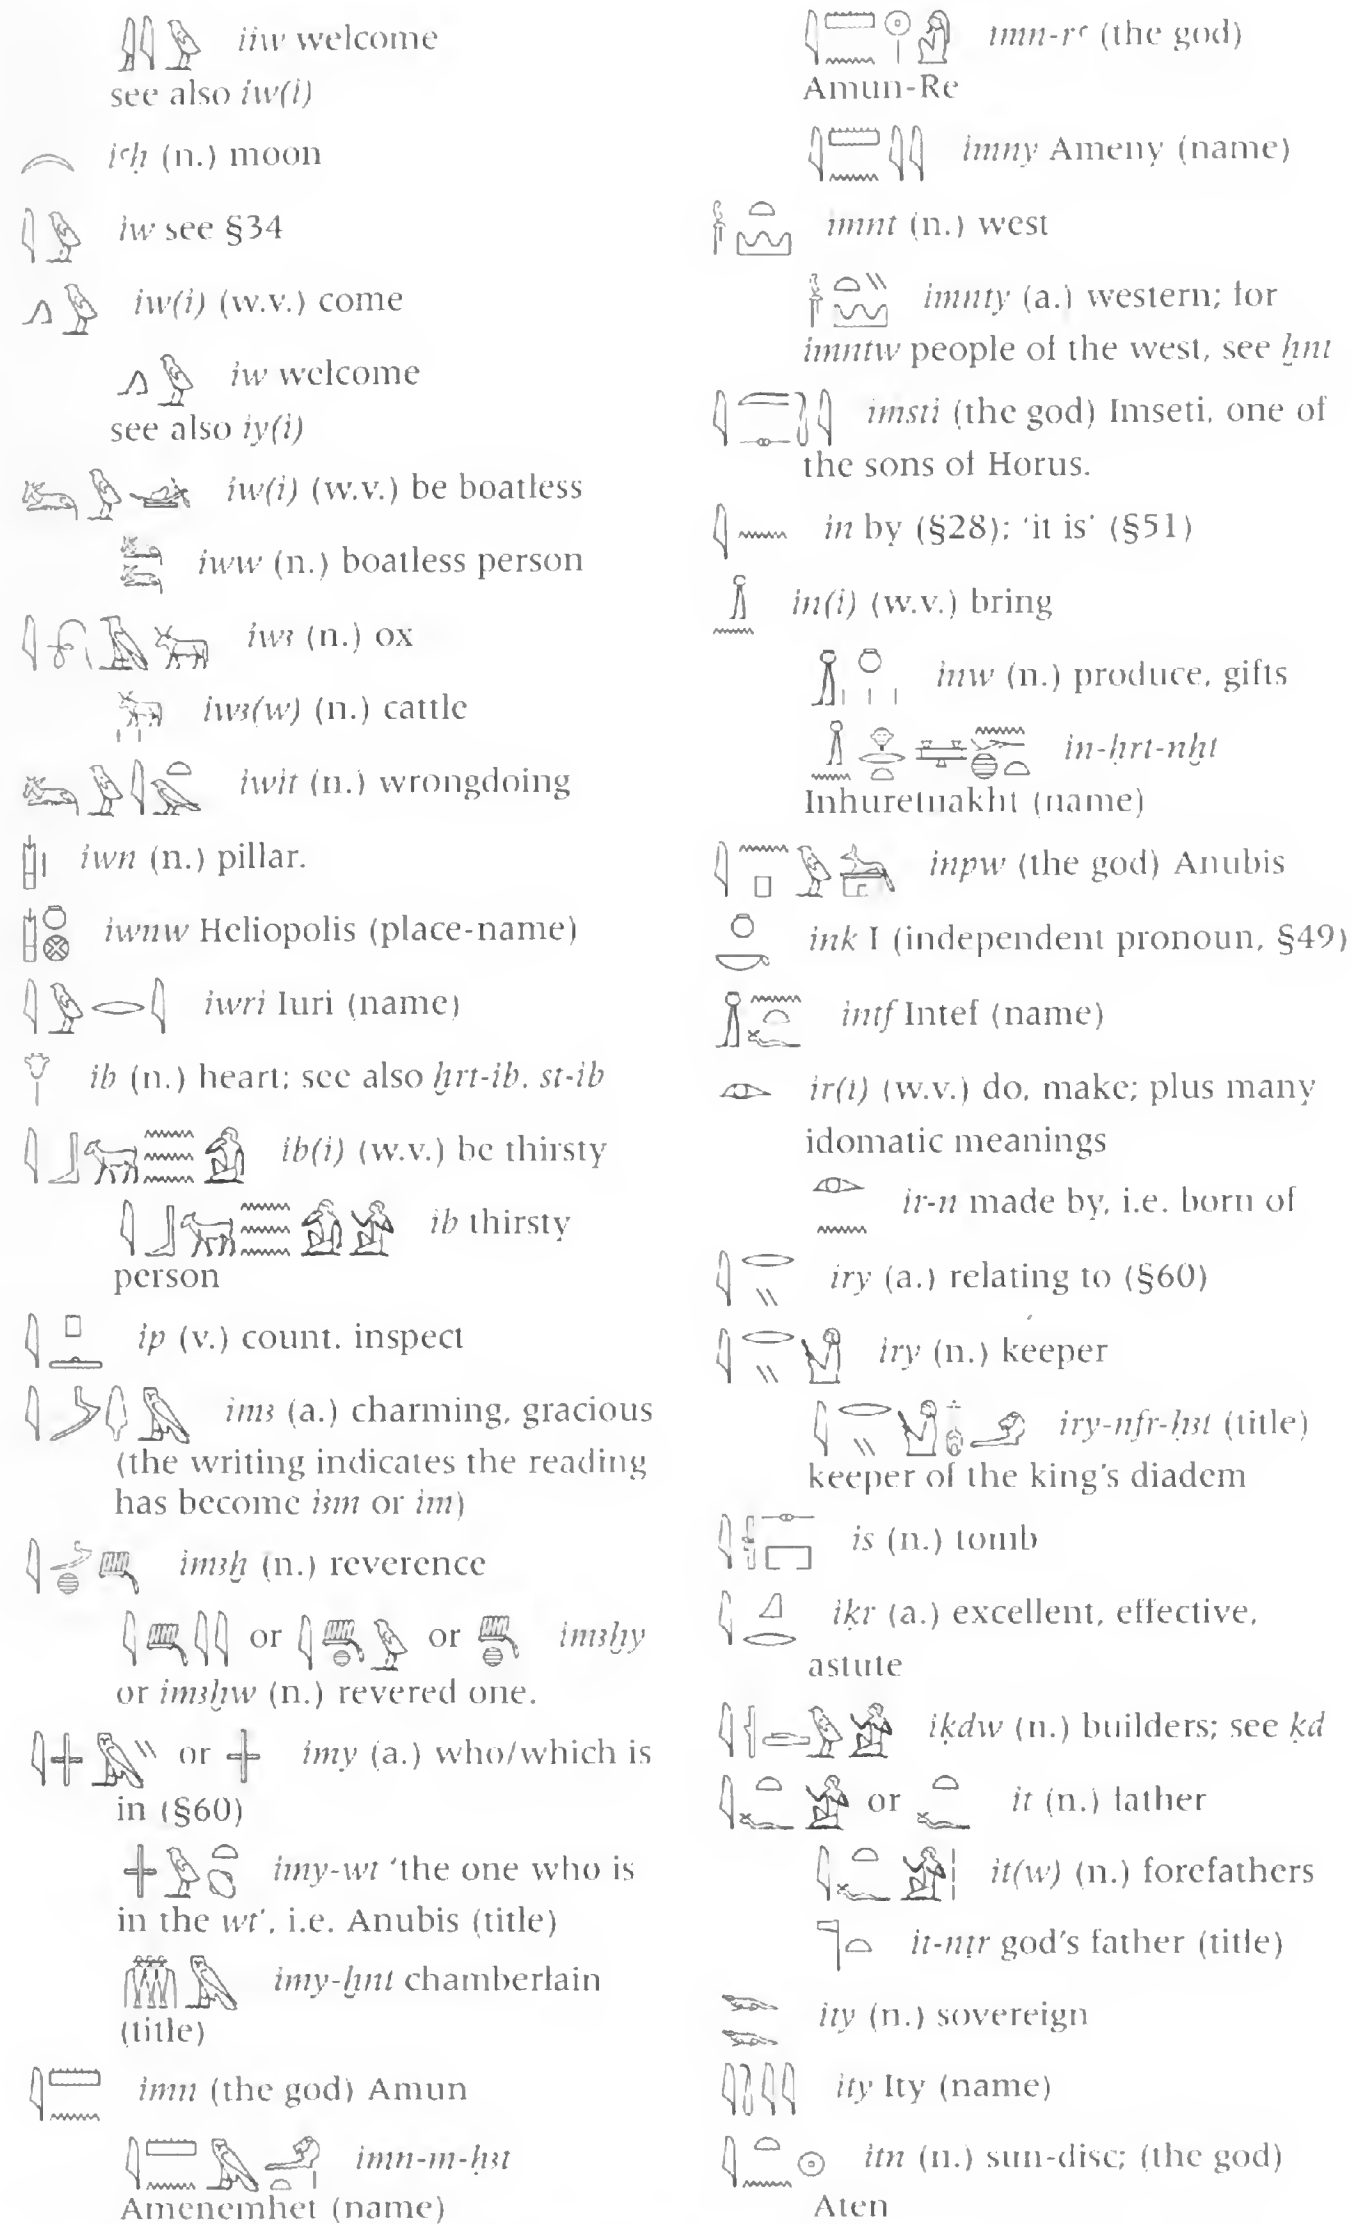 iiw welcome
see also iw(i)
iꜥḥ (n.) moon
iw see §34
iw(i) (w.v.) come
iw welcome
see also iy(i)
iw(i) (w.v.) be boatless
iww (n.) boatless person
iwꜣ (n.) ox
iwꜣ(w) (n.) cattle
iwit (n.) wrongdoing
iwn (n.) pillar.
iwnw Heliopolis (place-name)
iwri Iuri (name)
ib (n.) heart; see also ẖrt-ib, st-ib
ib(i) (w.v.) be thirsty
ib thirsty
person
ip (v.) count, inspect
imꜣ (a.) charming, gracious
(the writing indicates the reading
has become iꜣm or im)
imꜣḫ (n.) reverence
or or imꜣḫy
or imꜣḫw (n.) revered one.
or imy (a.) who/which is
in (§60)
imy-wt 'the one who is
in the wt', i.e. Anubis (title)
imy-ḫnt chamberlain
(title)
imn (the god) Amun
imn-m-ḥꜣt
Amenemhet (name)
imn-rꜥ (the god)
Amun-Re
imny Ameny (name)
imnt (n.) west
imnty (a.) western; for
imntw people of the west, see ḫnt
imsti (the god) Imseti, one of
the sons of Horus.
in by (§28); 'it is' (§51)
in(i) (w.v.) bring
inw (n.) produce, gifts
in-ḥrt-nḫt
Inhuretnakht (name)
inpw (the god) Anubis
ink I (independent pronoun, §49)
intf Intef (name)
ir(i) (w.v.) do, make; plus many
idomatic meanings
ir-n made by, i.e. born of
iry (a.) relating to (§60)
iry (n.) keeper
iry-nfr-ḥꜣt (title)
keeper of the king's diadem
is (n.) tomb
iḳr (a.) excellent, effective,
astute
iḳdw (n.) builders; see ḳd
or it (n.) father
it(w) (n.) forefathers
it-nṯr god's father (title)
ity (n.) sovereign
ity Ity (name)
itn (n.) sun-disc; (the god)
Aten